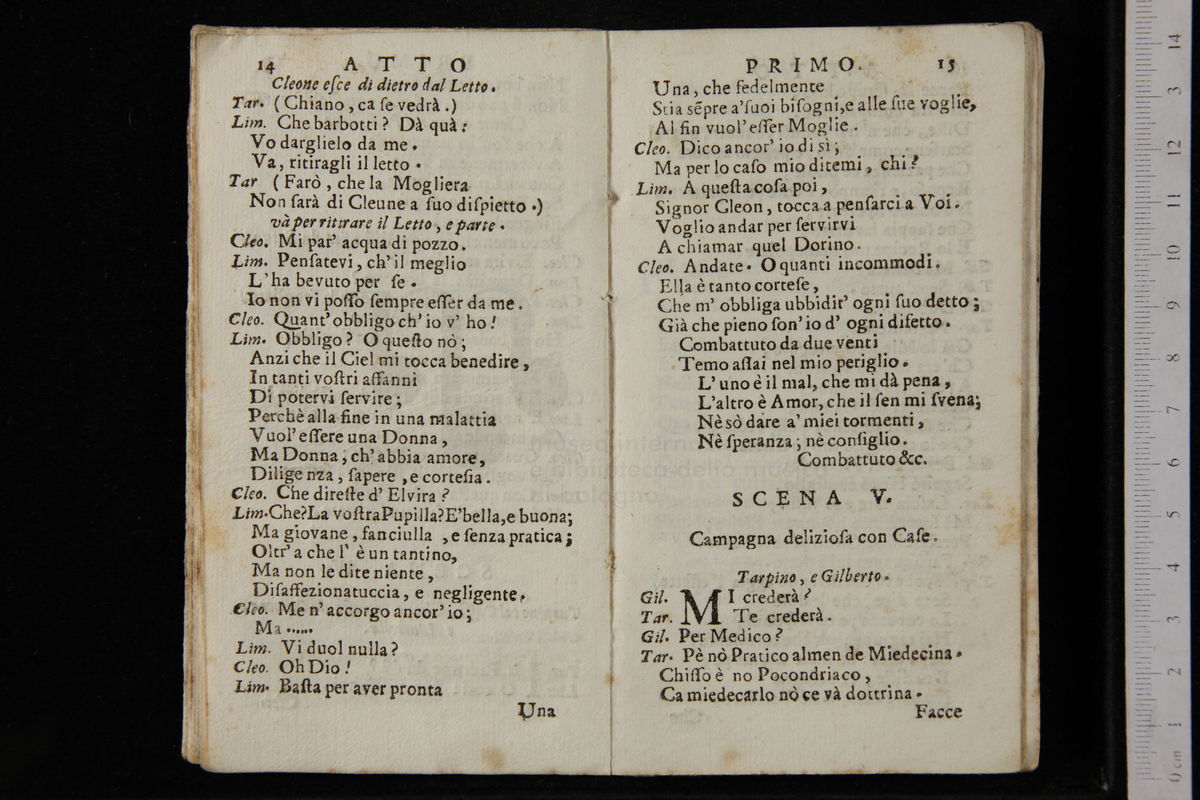 14 ATTO
Cleone eſce di dietro dal Letto.
Tar. (Chiano, ca ſe vedrà.)
Lim. Che barbotti? Dà quà:
Vo darglielo da me.
Va, ritiragli il letto.
Tar (Farò, che la Mogliera
Non ſarà di Cleune a ſuo diſpietto.)
và per ritirare il Letto, e parte.
Cleo. Mi par' acqua di pozzo.
Lim. Penſatevi, ch' il meglio
L' ha bevuto per ſe.
Io non vi poſſo ſempre eſſer da me.
Cleo. Quant' obbligo ch' io v' ho!
Lim. Obbligo? O queſto nò;
Anzi che il Ciel mi tocca benedire,
In tanti voſtri affanni
Di potervi ſervire;
Perchè alla fine in una malattia
Vuol' eſſere una Donna,
Ma Donna, ch' abbia amore,
Diligenza, ſapere, e corteſia.
Cleo. Che direſte d' Elvira?
Lim. Che? La voſtra Pupilla? E' bella, e buona;
Ma giovane, fanciulla, e ſenza pratica;
Oltr' a che l' è un tantino,
Ma non le dite niente,
Diſaffezionatuccia, e negligente.
Cleo. Me n' accorgo ancor' io;
Ma......
Lim. Vi duol nulla?
Cleo. Oh Dio!
Lim. Baſta per aver pronta
Una
PRIMO. 15
Una, che fedelmente
Stia sẽpre a' ſuoi biſogni, e alle ſue voglie,
Al fin vuol' eſſer Moglie.
Cleo. Dico ancor' io di sì;
Ma per lo caſo mio ditemi, chi?
Lim. A queſta coſa poi,
Signor Cleon, tocca a penſarci a Voi.
Voglio andar per ſervirvi
A chiamar quel Dorino.
Cleo. Andate. O quanti incommodi.
Ella è tanto corteſe,
Che m' obbliga ubbidir' ogni ſuo detto;
Già che pieno ſon' io d' ogni difetto.
Combattuto da due venti
Temo aſſai nel mio periglio.
L' uno è il mal, che mi dà pena,
L'altro è Amor, che il ſen mi ſvena;
Nè sò dare a' miei tormenti,
Nè ſperanza; nè conſiglio.
Combattuto &c.
SCENA V.
Campagna delizioſa con Caſe.
Tarpino, e Gilberto.
Gil. MI crederà?
Tar. Te crederà.
Gil. Per Medico?
Tar. Pè nò Pratico almen de Miedecina.
Chiſſo è no Pocondriaco,
Ca miedecarlo nò ce và dottrina.
Facce
14
3
12
11
10
9
8
7
6
5
4
3
2
1
0 cm